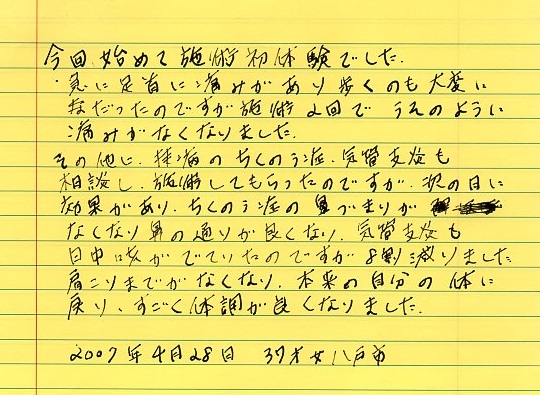 今回、始めて施術初体験でした。
・急に足首に痛みがあり歩くのも大変に
なだったのですが施術2回でうそのように
痛みがなくなりました。
その他に、持病のちくのう症、気管支炎も
相談し、施術してもらったのですが、次の日に
効果があり、ちくのう症の鼻づまりが
なくなり鼻の通りが良くなり、気管支炎も
日中咳がでていたのですが8割減りました
肩こりまでがなくなり、本来の自分の体に
戻り、すごく体調が良くなりました。
2007年4月28日 37才女八戸市